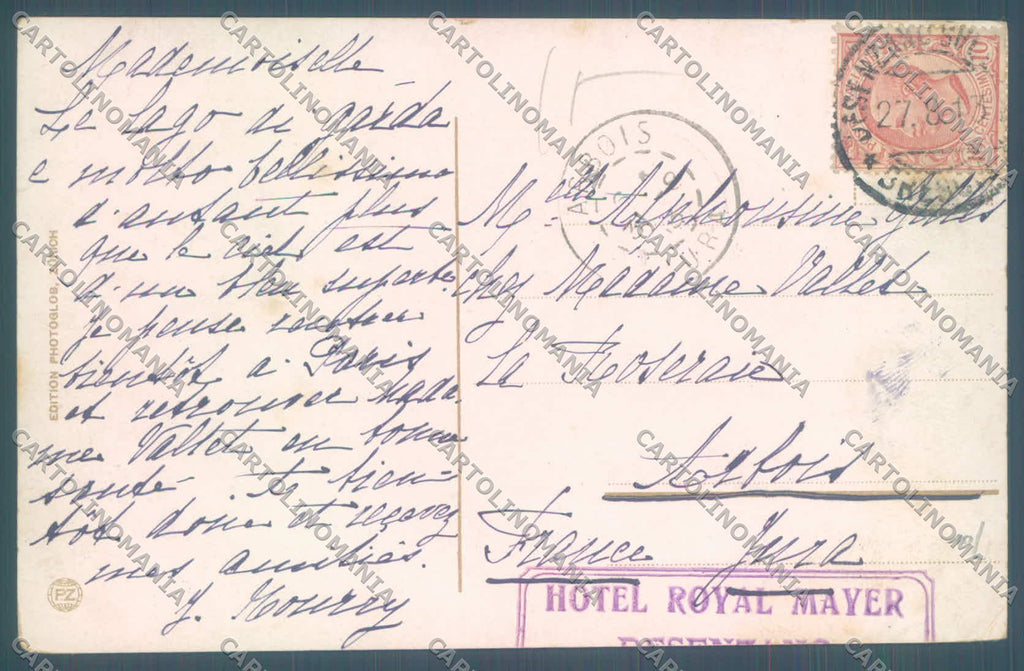 Mademoiselle
Le Lago di garda
e molto bellissimo
d'autant plus
que le ciel est
d'un bleu superbe.
Je pense rentrer
bientôt à Paris
et retrouver Mada
me Vallet en bonne
santé. À bien-
tôt donc et recevez
mes amitiés.
EDITION PHOTOGLOB, ZÜRICH
PZ
10
27. 8
ARBOIS
JURA
Melle Alphonsine
chez Madame Vallet
La Roseraie
Arbois
France Jura
HOTEL ROYAL MAYER
DESENZANO
CARTOLINOMANIA